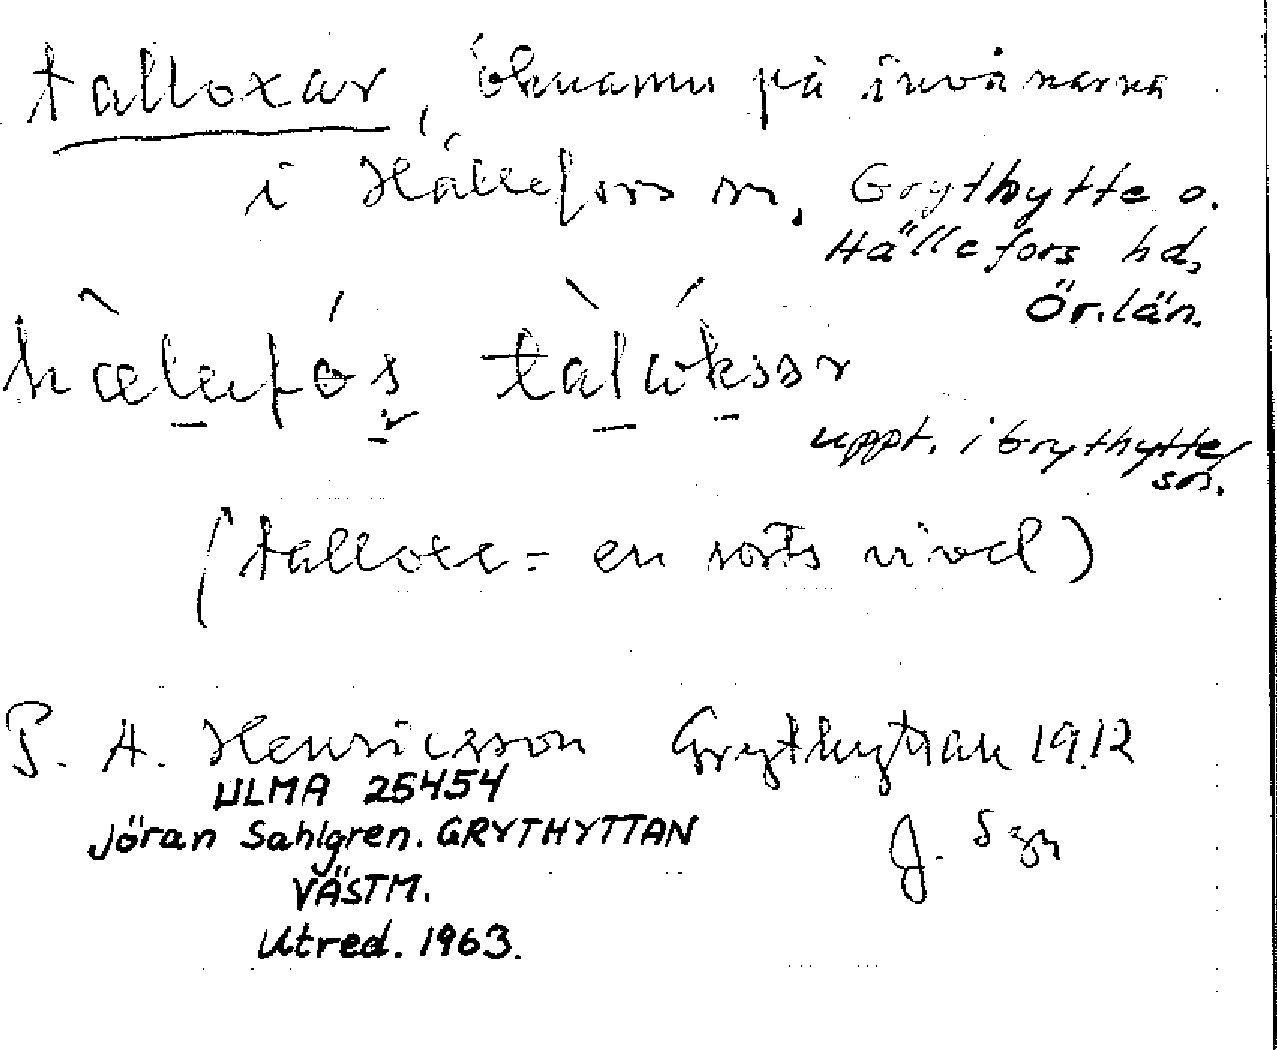 talloxar, öknamn på invånarna
i Hällefors sn, Grythytte o.
Hällefors hd,
Ör. län.
uppt. i Grythytte
sn.
(talloxe = en sorts vivel)
P. A. Henricsson Grythyttan 1912
ULMA 25454
Jöran Sahlgren. GRYTHYTTAN
J. Sgn
VÄSTM.
Utred. 1963.